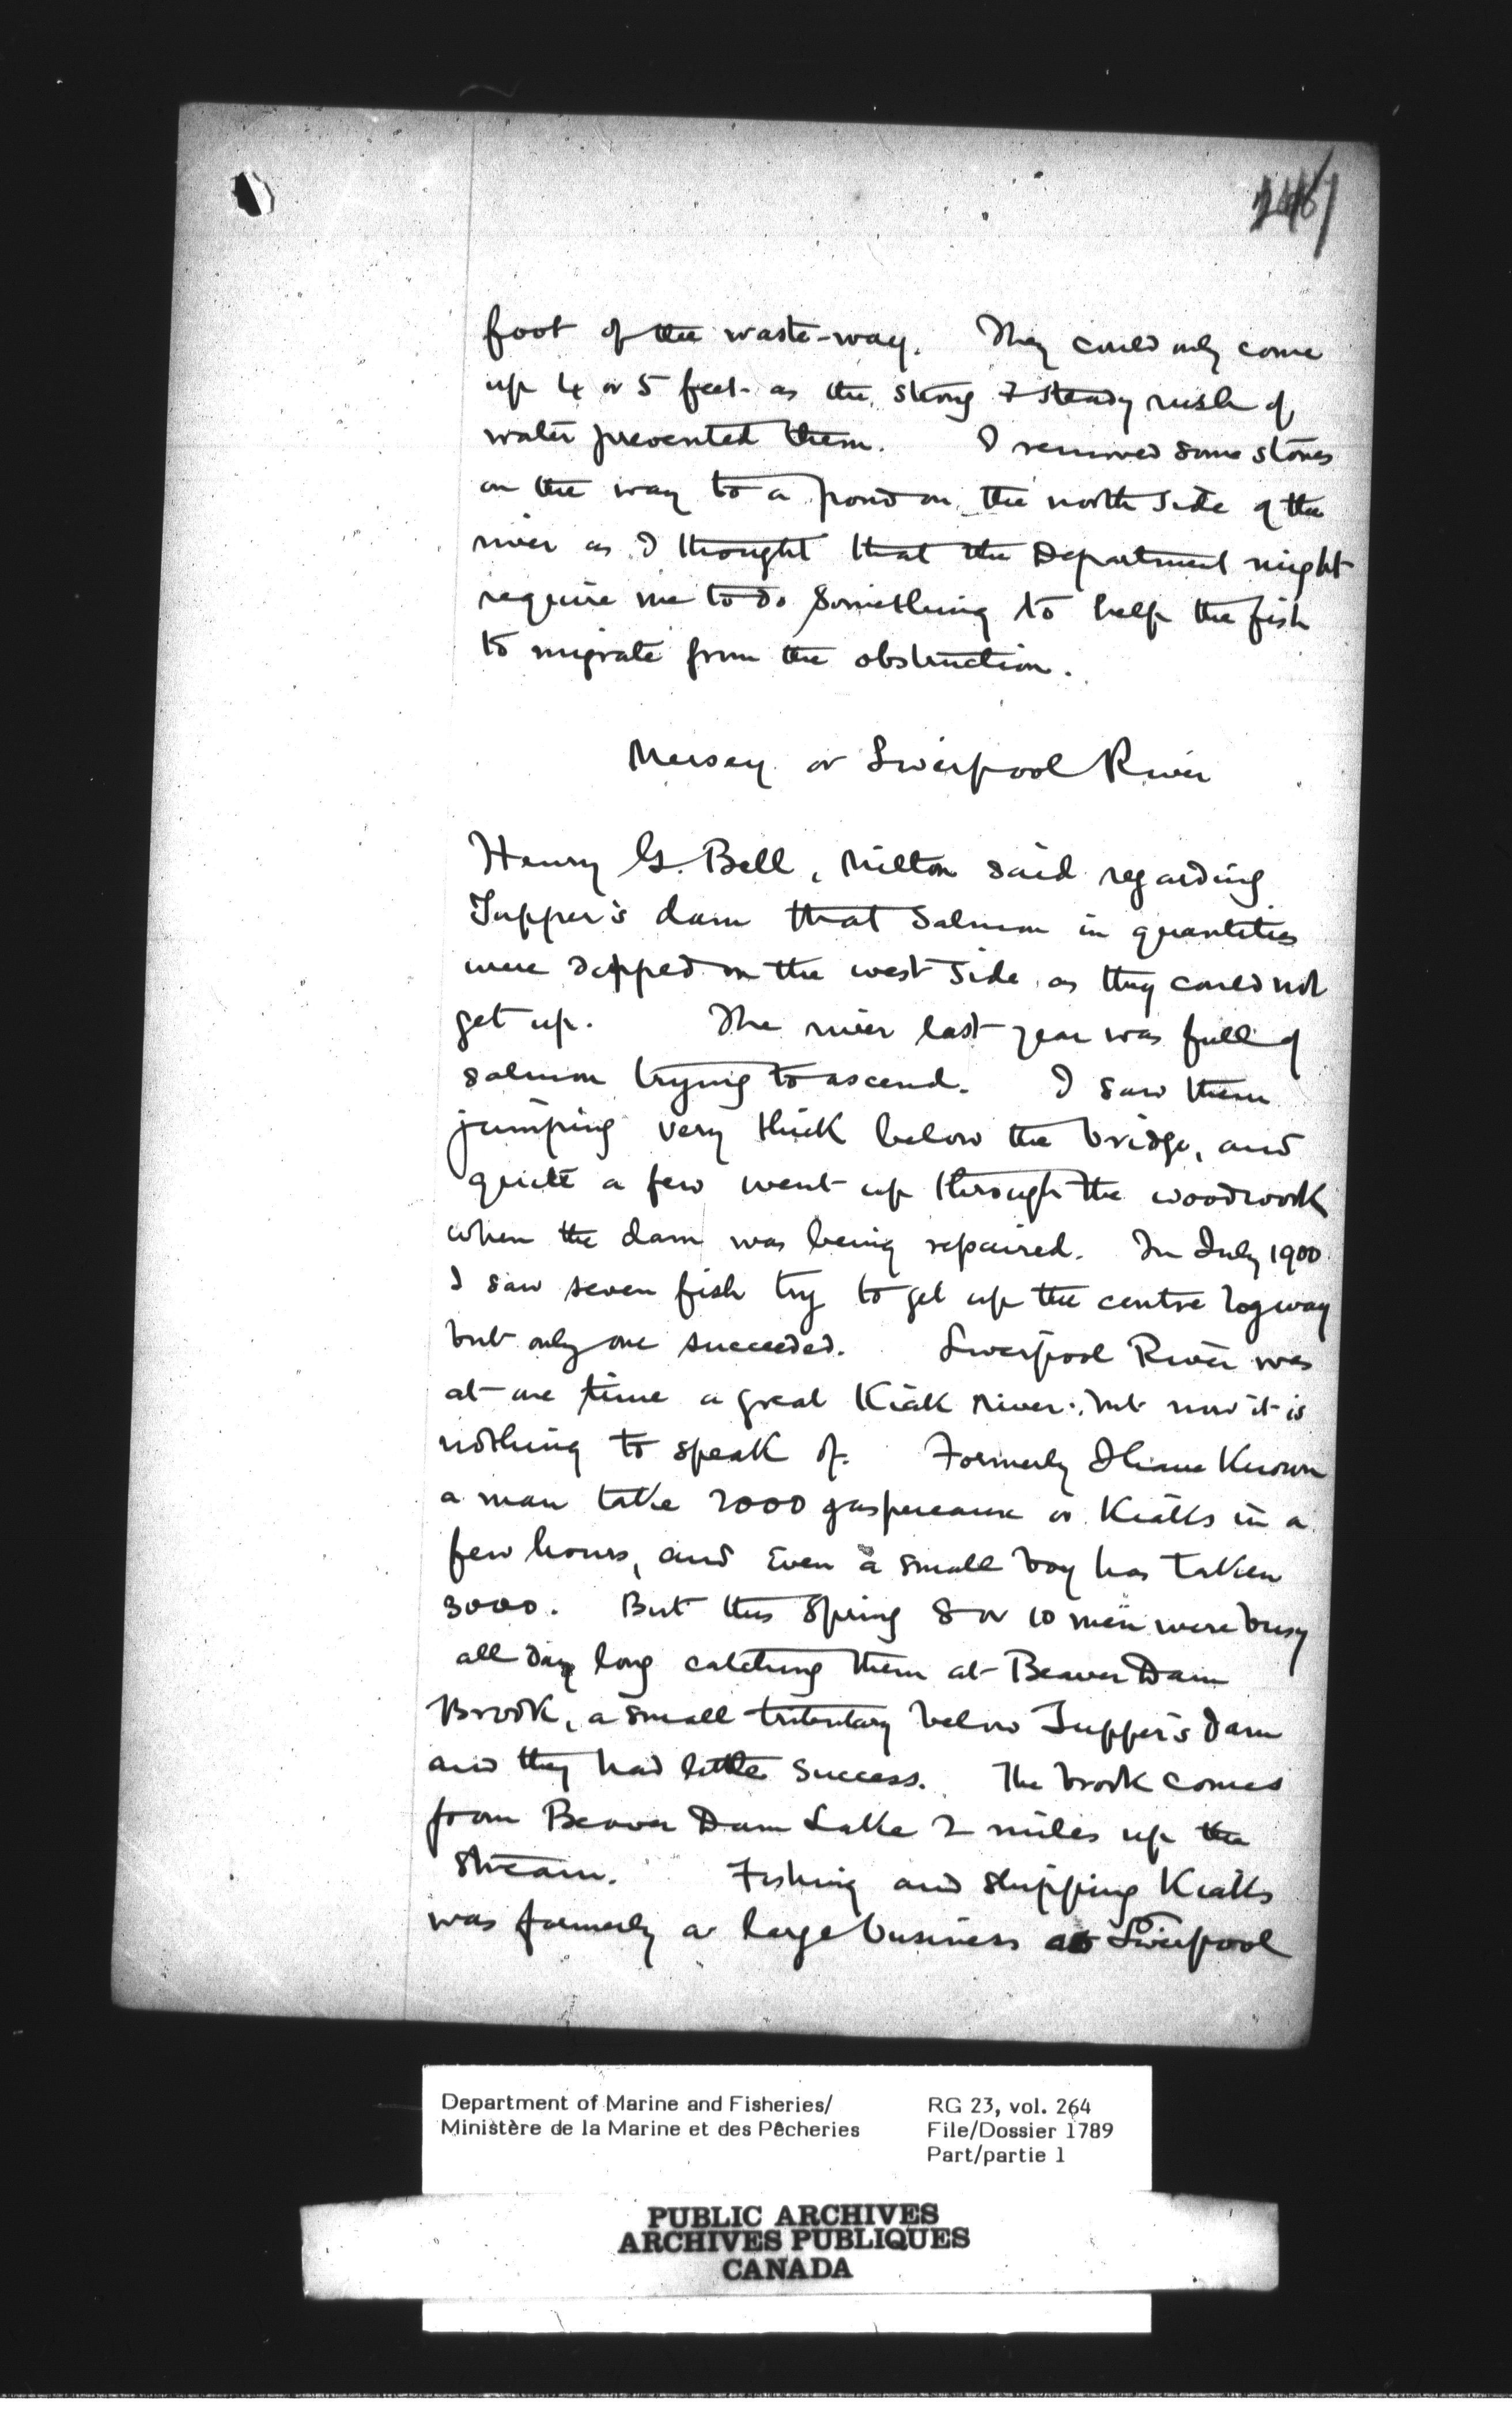 foot of the waste-way. They could only come
up 4 or 5 feet as the strong & steady rush of
water prevented them. I removed some stones
on the way to a pond on the north side of the
river as I thought that the Department might
require me to do something to help the fish
to migrate from the obstruction.
Mersey or Liverpool River
Henry G. Bell, Milton said regarding
Tupper's dam that Salmon in quantities
were dipped on the west side as they could not
get up. The river last year was full of
salmon trying to ascend. I saw them
jumping very thick below the bridge, and
quite a few went up through the woodwork
when the dam was being repaired. In July 1900
I saw seven fish try to get up the centre logway
but only one succeeded. Liverpool River was
at one time a great Kiak river: but now it is
nothing to speak of. Formerly I have known
a man take 2000 gaspereaux or Kiaks in a
few hours, and even a small boy has taken
3000. But this Spring 8 or 10 men were busy
all day long catching them at Beaver Dam
Brook, a small tributary below Tupper's dam
and they had little success. The brook comes
from Beaver Dam Lake 2 miles up the
stream. Fishing and shipping Kiaks
was formerly a large business at Liverpool
Department of Marine and Fisheries/ RG 23, vol. 264
Ministère de la Marine et des Pêcheries File/Dossier 1789
Part/partie 1
PUBLIC ARCHIVES
ARCHIVES PUBLIQUES
CANADA